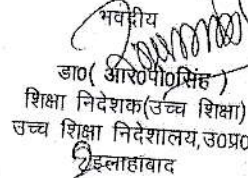 भवदीय
डा०( आर०पी०सिंह )
शिक्षा निदेशक(उच्च शिक्षा)
उच्च शिक्षा निदेशालय,उ०प्र०
इलाहाबाद